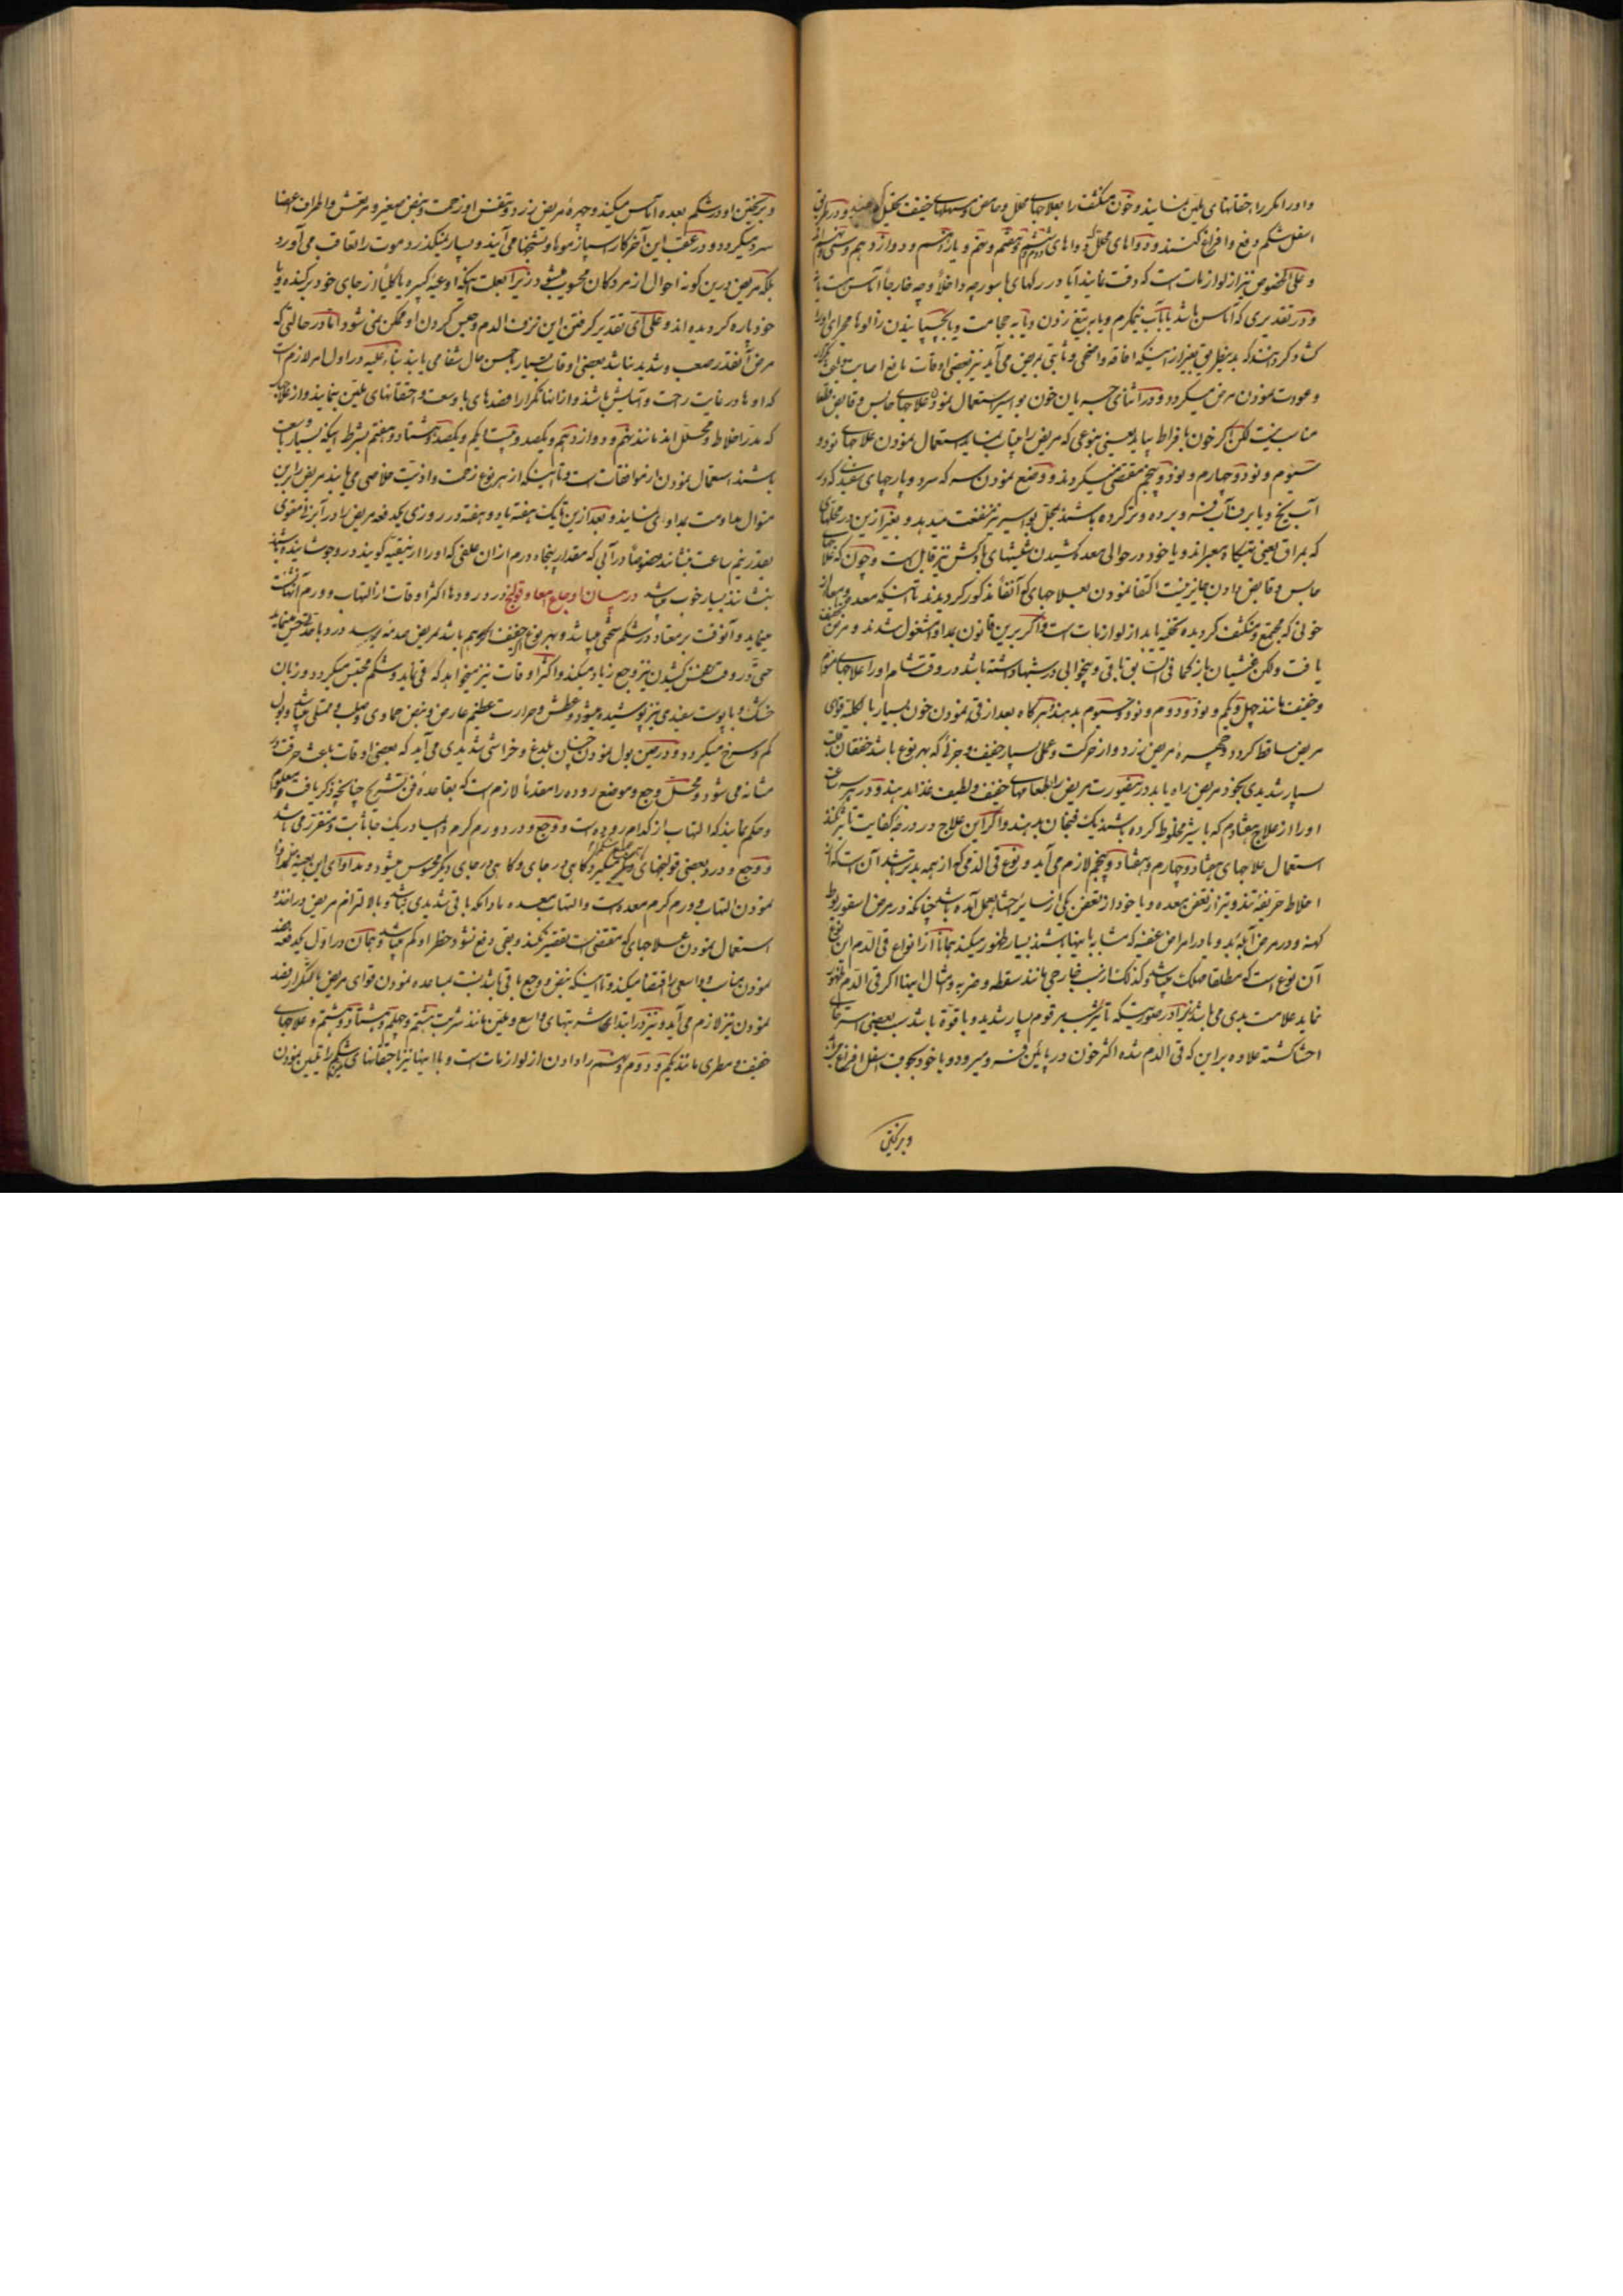 و او را مکرر با حقنهای ملین نمایند و خون منکشف را بعلاجهای محلل و حامض و مسهلهای خفیف تحلیل دهند و در
اسفل شکم دفع و افراغ کنند و دواهای محلل دواهای ششم و هشتم و نهم و یازدهم و دوازدهم و سی و
و علی الخصوص نیز از لوازمات است که دقت نمایند آیا در رکهای باسور چه داخلاً و چه خارجاً آماس هست یا نه
و در تقدیری که آماس باشد یا بآب نیمگرم و یا به تیغ زدن و یا به حجامت و یا بچسپانیدن زالوها مجرای او را
کشاد کردهاند که بدینطریق بغیر از اینکه افاقه واضحی و ثابتی بمریض می آید نیز بعضی اوقات مانع اصابت
و عودت نمودن مرض میگردد و در اثنای جریان خون بواسیر استعمال نمودن علاجهای حابس و قابض
مناسب نیست لکن اگر خون بافراط بیاید یعنی بنوعی که مریض را بیتاب نماید استعمال نمودن علاجهای نود و
سیوم و نود و چهارم و نود و پنجم مقتضی میگردند و وضع نمودن سرکه سرد و پارچهای سفیدی که در
آب یخ و یا برف آب فرو برده و تر کرده باشند بمحل بواسیر نیز منفعت میدهد و بغیر ازین در محلهای
که بمراق یعنی تهیکاه معبراند و یا خود در حوالی معده کشیدن شیشهای بادکش نیز قابل است و چون که علاجهای
حابس و قابض دادن جایز نیست اکتفا نمودن بعلاجهای که آنفاً مذکور کردیدند تا اینکه معده و امعا از
خونی که مجتمع و منکشف کردیده تخلیه یابد از لوازمات است و اکر برین قانون بمداوا مشغول شدند و مرض تخفیف
یافت ولکن غشیان باز کما فی السابق باقی و بیخوابی در شبها داشته باشد در وقت شام او را علاجهای منوم
و خفیف مانند چهل و یکم و نود و دوم و نود و سیوم بدهند و هرکاه بعد از قی نمودن خون بسیار بالکلیه قوای
مریض ساقط کردد و چهره مریض زرد و از حرکت و عملی بسیار خفیف و جزئی که بهر نوع باشد خفقان قلب
بسیار شدیدی بخود مریض راه یابد در اینصورت مریض را بطعامهای خفیف و لطیف غذا بدهند و در هر سه ساعت
او را از علاج هفتادم که با شیر مخلوط کرده باشند یک فنجان بدهند و اکر این علاج در درجهٔ کفایت تأثیر نکند
استعمال علاجهای هفتاد و چهارم و هفتاد و پنجم لازم می آید و نوع قی الدمی که از همه بدتر باشد آن است که از
اخلاط حریفه تند و تیز از تعفن معده و یا خود از تعفن یکی از سایر احشا بعمل آمده باشد چنانکه در مرض اسقوربوط
کهنه و در مرض آبله بد و یا در امراض عفنه که مشابه باینها باشند بسیار ظهور میکند همانا از انواع قی الدم این نوع
آن نوع است که مطلقا مهلک میباشد و کذلک از سبب خارجی مانند سقطه و ضربه و امثال اینها اکر قی الدم ظهور
نماید علامت بدی می باشد زیرا در صورتیکه تأثیر سبب مرقوم بسیار شدید و با قوة باشد سبب بعضی استرخای
احشا کشته علاوه بر این که قی الدم شده اکثر خون در پائین فرو میرود و یا خود بجوف اسفل افراغ
و برنجین
و برنجین او در شکم بعده آماس میکند و چهره مریض زرد و تنفس او زحمت و نبض صغیر و مرتعش و اطراف اعضا
سرد میکردد و در عقب این آخر کار اسپازموها و تشنجها می آیند و بسیار نمیکذرد موت را تعاقب می آورد
بلکه مریض درین کونه احوال از مردکان محسوب میشود زیرا بعلت اینکه اوعیه کبیره بالکلیه از جای خود برکنده و یا
خود پاره کردیده اند و علی ای تقدیر کرفتن این نزف الدم و حبس کردن او ممکن نمی شود اما در حالتی که
مرض آنقدر صعب و شدید نباشد بعضی اوقات بسیار باحسن حال شفا می یابند بناء علیه در اول امر لازم است
که او ها در غایت راحت و آسایش باشند و آنها تکراراً فصدهای با وسعت و احقانهای ملین نمایند و از علاجهای
که مدر اخلاط و محلل اند مانند نهم و دوازدهم و یکصد و بیست و یکم و یکصد و هشتاد و هفتم بشرط اینکه بسیار با وسعت
باشند استعمال نمودن از موافقات است و تا اینکه از هر نوع زحمت و اذیت خلاصی می یابند مریض را برین
منوال مداومت بمداوای نمایند و بعد ازین تا یک هفته یا دو هفته در روزی یکدفعه مریض را در آبزنهای مقوی
بقدر نیم ساعت بنشانند خصوصاً در آبی که مقدار پنجاه درم از آن علفی که او را ارنیقیه کویند در و جوشانیده باشند
بنشانند بسیار خوب میباشد در بیان اوجاع امعا و قولنج درد رودها اکثر اوقات از التهاب و ورم آنها نشئت
مینماید و آنوقت بر معتاد در شکم سختی میباشد و بهر نوع خفیف اکر هم باشد بمریض صدمه بر سد درد با حدت حس مینماید
حتی در وقت نفس کشیدن نیز وجع زیاد میکند و اکثر اوقات نیز میخواهد که قی نماید و شکم محتبس میکردد و زبان
خشک و با پوست سفیدی نیز پوشیده میشود و عطش و حرارت عظیم عارض و نبض حماوی و صلب و ممتلی میباشد و بول
کم و سرخ میکردد و در حین بول نمودن چنان بلدغ و خراشی شدیدی می آید که بعضی اوقات باعث حرقت
مثانه می شود و محل وجع و موضع روده را مقدماً لازم است که بقاعده فن تشریح چنانچه ذکر یافت معلوم
و حکم نمایند که التهاب از کدام روده است و وجع و درد ورم کرم امعا در یک جا ثابت و متقرر می باشد
و وجع و درد بعضی قولنجهای دیگر کاهی در جای و کاهی در جای دیگر محسوس میشود و مداوای این بعینه
نمودن التهاب و ورم کرم معده است و التهاب معده مادامکه با قی شدیدی میباشد و بالالتزام مریض در اخذ و
استعمال نمودن علاجهای که مقتضی است تقصیر نکند و بقی دفع نشود خطر او کم میباشد و همان در اول یکدفعه فصد
نمودن جناب و واسعی را اقتضا میکند و تا اینکه نبض و وجع باقی باشد نسبت بمساعده نمودن قوای مریض بالتکرار فصد
نمودن نیز لازم می آید و نیز در ابتدای شربتهای واسع و ملین مانند شربت هشتم و چهلم و هشتاد و هشتم و علاجهای
خفیف و مطری مانند یکم و دوم و هشتم را دادن از لوازمات است و با اینها نیز با حقنهای شکم را تلیین نمودن